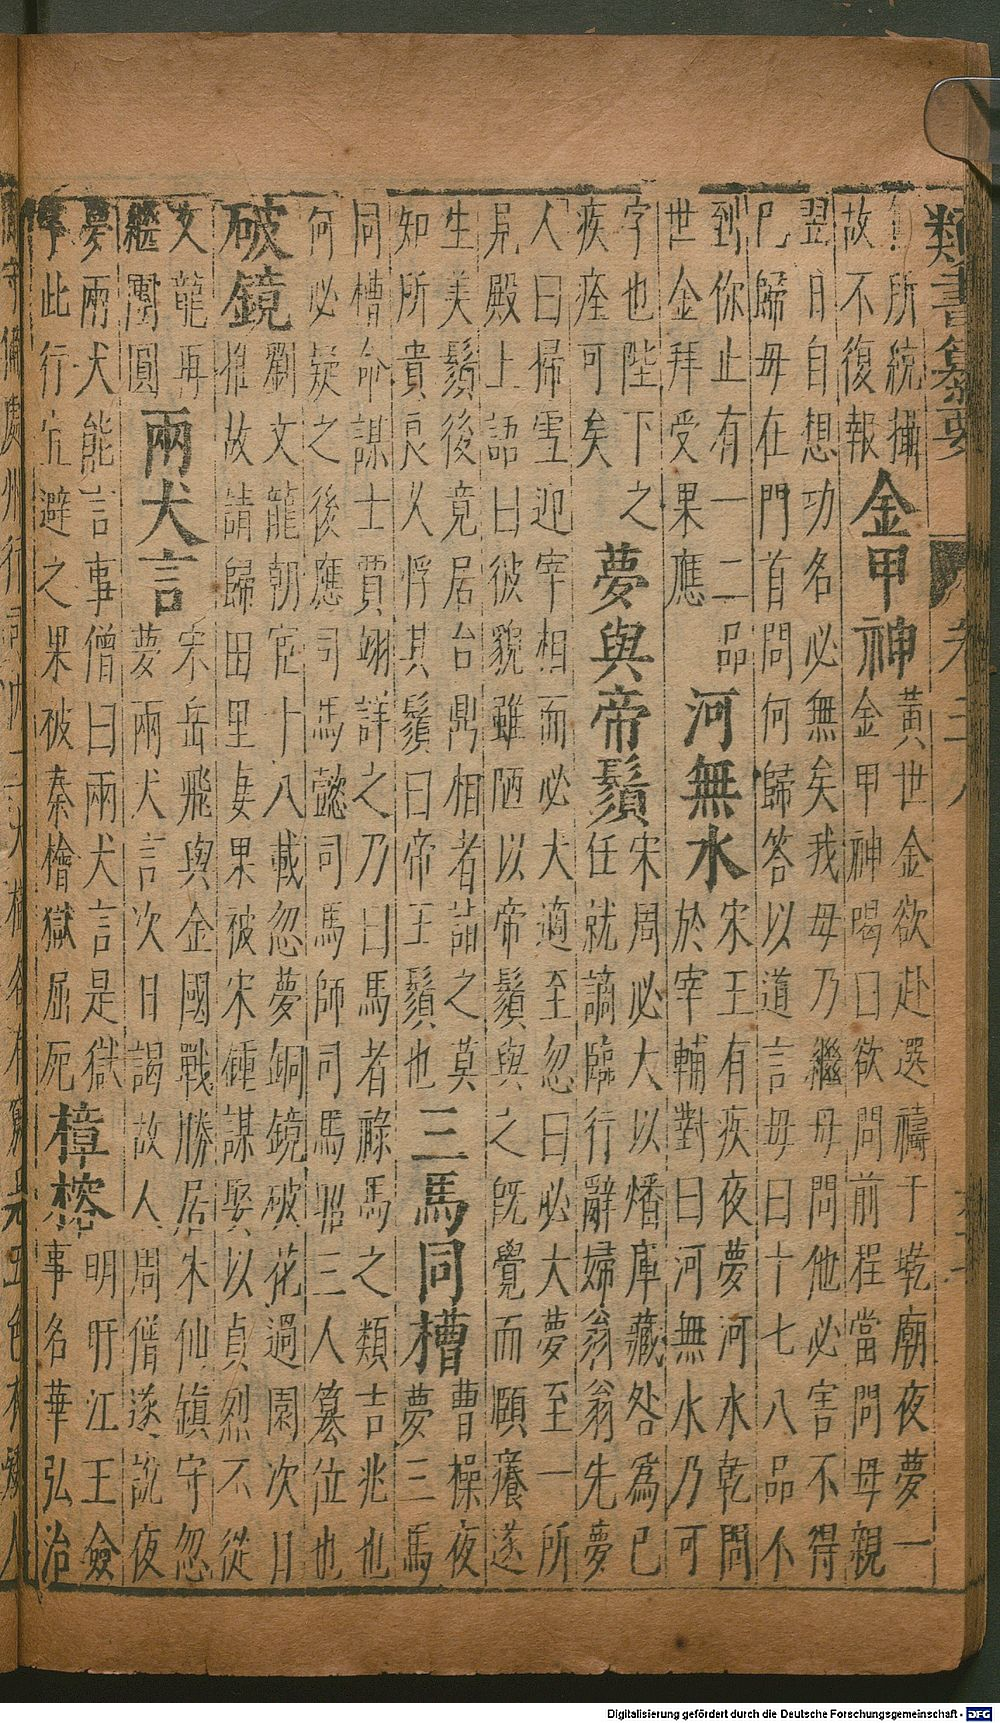 類書纂要
卷三八
所統攝
故不復報
金甲神
黃世金欲赴選禱于乾廟夜夢一
金甲神喝曰欲問前程當問母親
翌日自想功名必無矣我母乃繼母問他必害不得
巳歸母在門首問何歸答以道言母曰十七八品不
到你止有一二品
世金拜受果應
河無水
宋王有疾夜夢河水乾問
於宰輔對曰河無水乃可
字也陛下之
疾痊可矣
夢與帝鬚
宋周必大以燔庫藏咎為已
任就謫臨行辭婦翁翁先夢
人曰掃雪迎宰相而必大適至忽曰必大夢至一所
見殿上語曰彼貌雖陋以帝鬚與之旣覺而頤癢遂
生美鬚後竟居台鼎相者詰之莫
知所貴良久捋其鬚曰帝王鬚也
三馬同槽
曹操夜
夢三馬
同槽命謀士賈翊詳之乃曰馬者祿馬之類吉兆也
何必疑之後應司馬懿司馬師司馬昭三人篡位也
破鏡
劉文龍朝宦十八載忽夢銅鏡破花過園次日
推故請歸田里妻果被宋鍾謀娶以貞烈不從
文龍再
繼團圓
兩犬言
宋岳飛與金國戰勝居朱仙鎮守忽
夢兩犬言次日謁故人周僧遂說夜
夢兩犬能言事僧曰兩犬言是獄
此行宜避之果被秦檜獄屈死
樟榕
明盱江王僉
事名華弘治
Digitalisierung gefördert durch die Deutsche Forschungsgemeinschaft - DFG